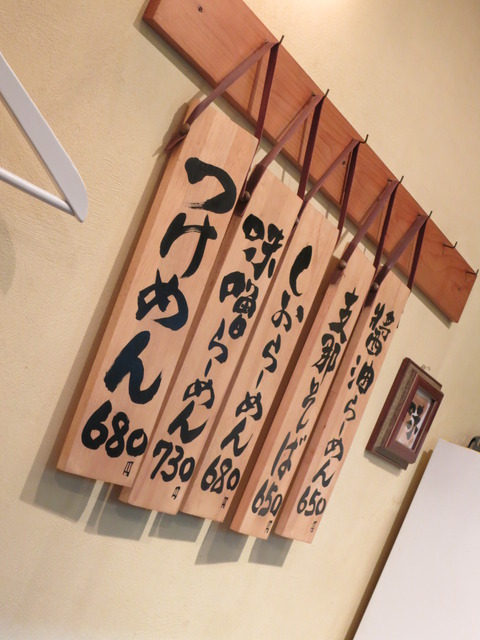 醤油らーめん650円
支那そば650円
しおらーめん680円
味噌らーめん730円
つけめん680円